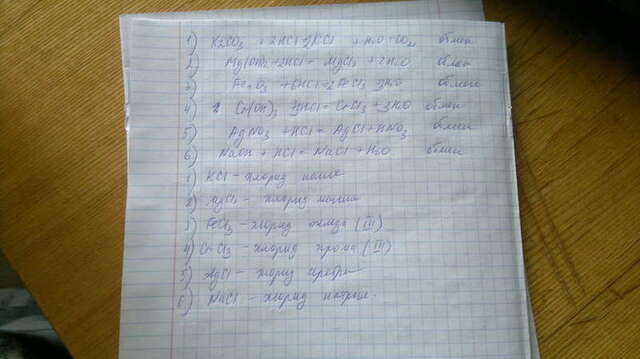 1) K2CO3 + 2HCl = 2KCl + H2O + CO2 обмен
2) Mg(OH)2 + 2HCl = MgCl2 + 2H2O обмен
3) Fe2O3 + 6HCl = 2FeCl3 3H2O обмен
4) Cr(OH)3 3HCl = CrCl3 + 3H2O обмен
5) AgNO3 + HCl = AgCl + HNO3 обмен
6) NaOH + HCl = NaCl + H2O обмен
1) KCl - хлорид калия
2) MgCl2 - хлорид магния
3) FeCl3 - хлорид железа (III)
4) CrCl3 - хлорид хрома (III)
5) AgCl - хлорид серебра
6) NaCl - хлорид натрия